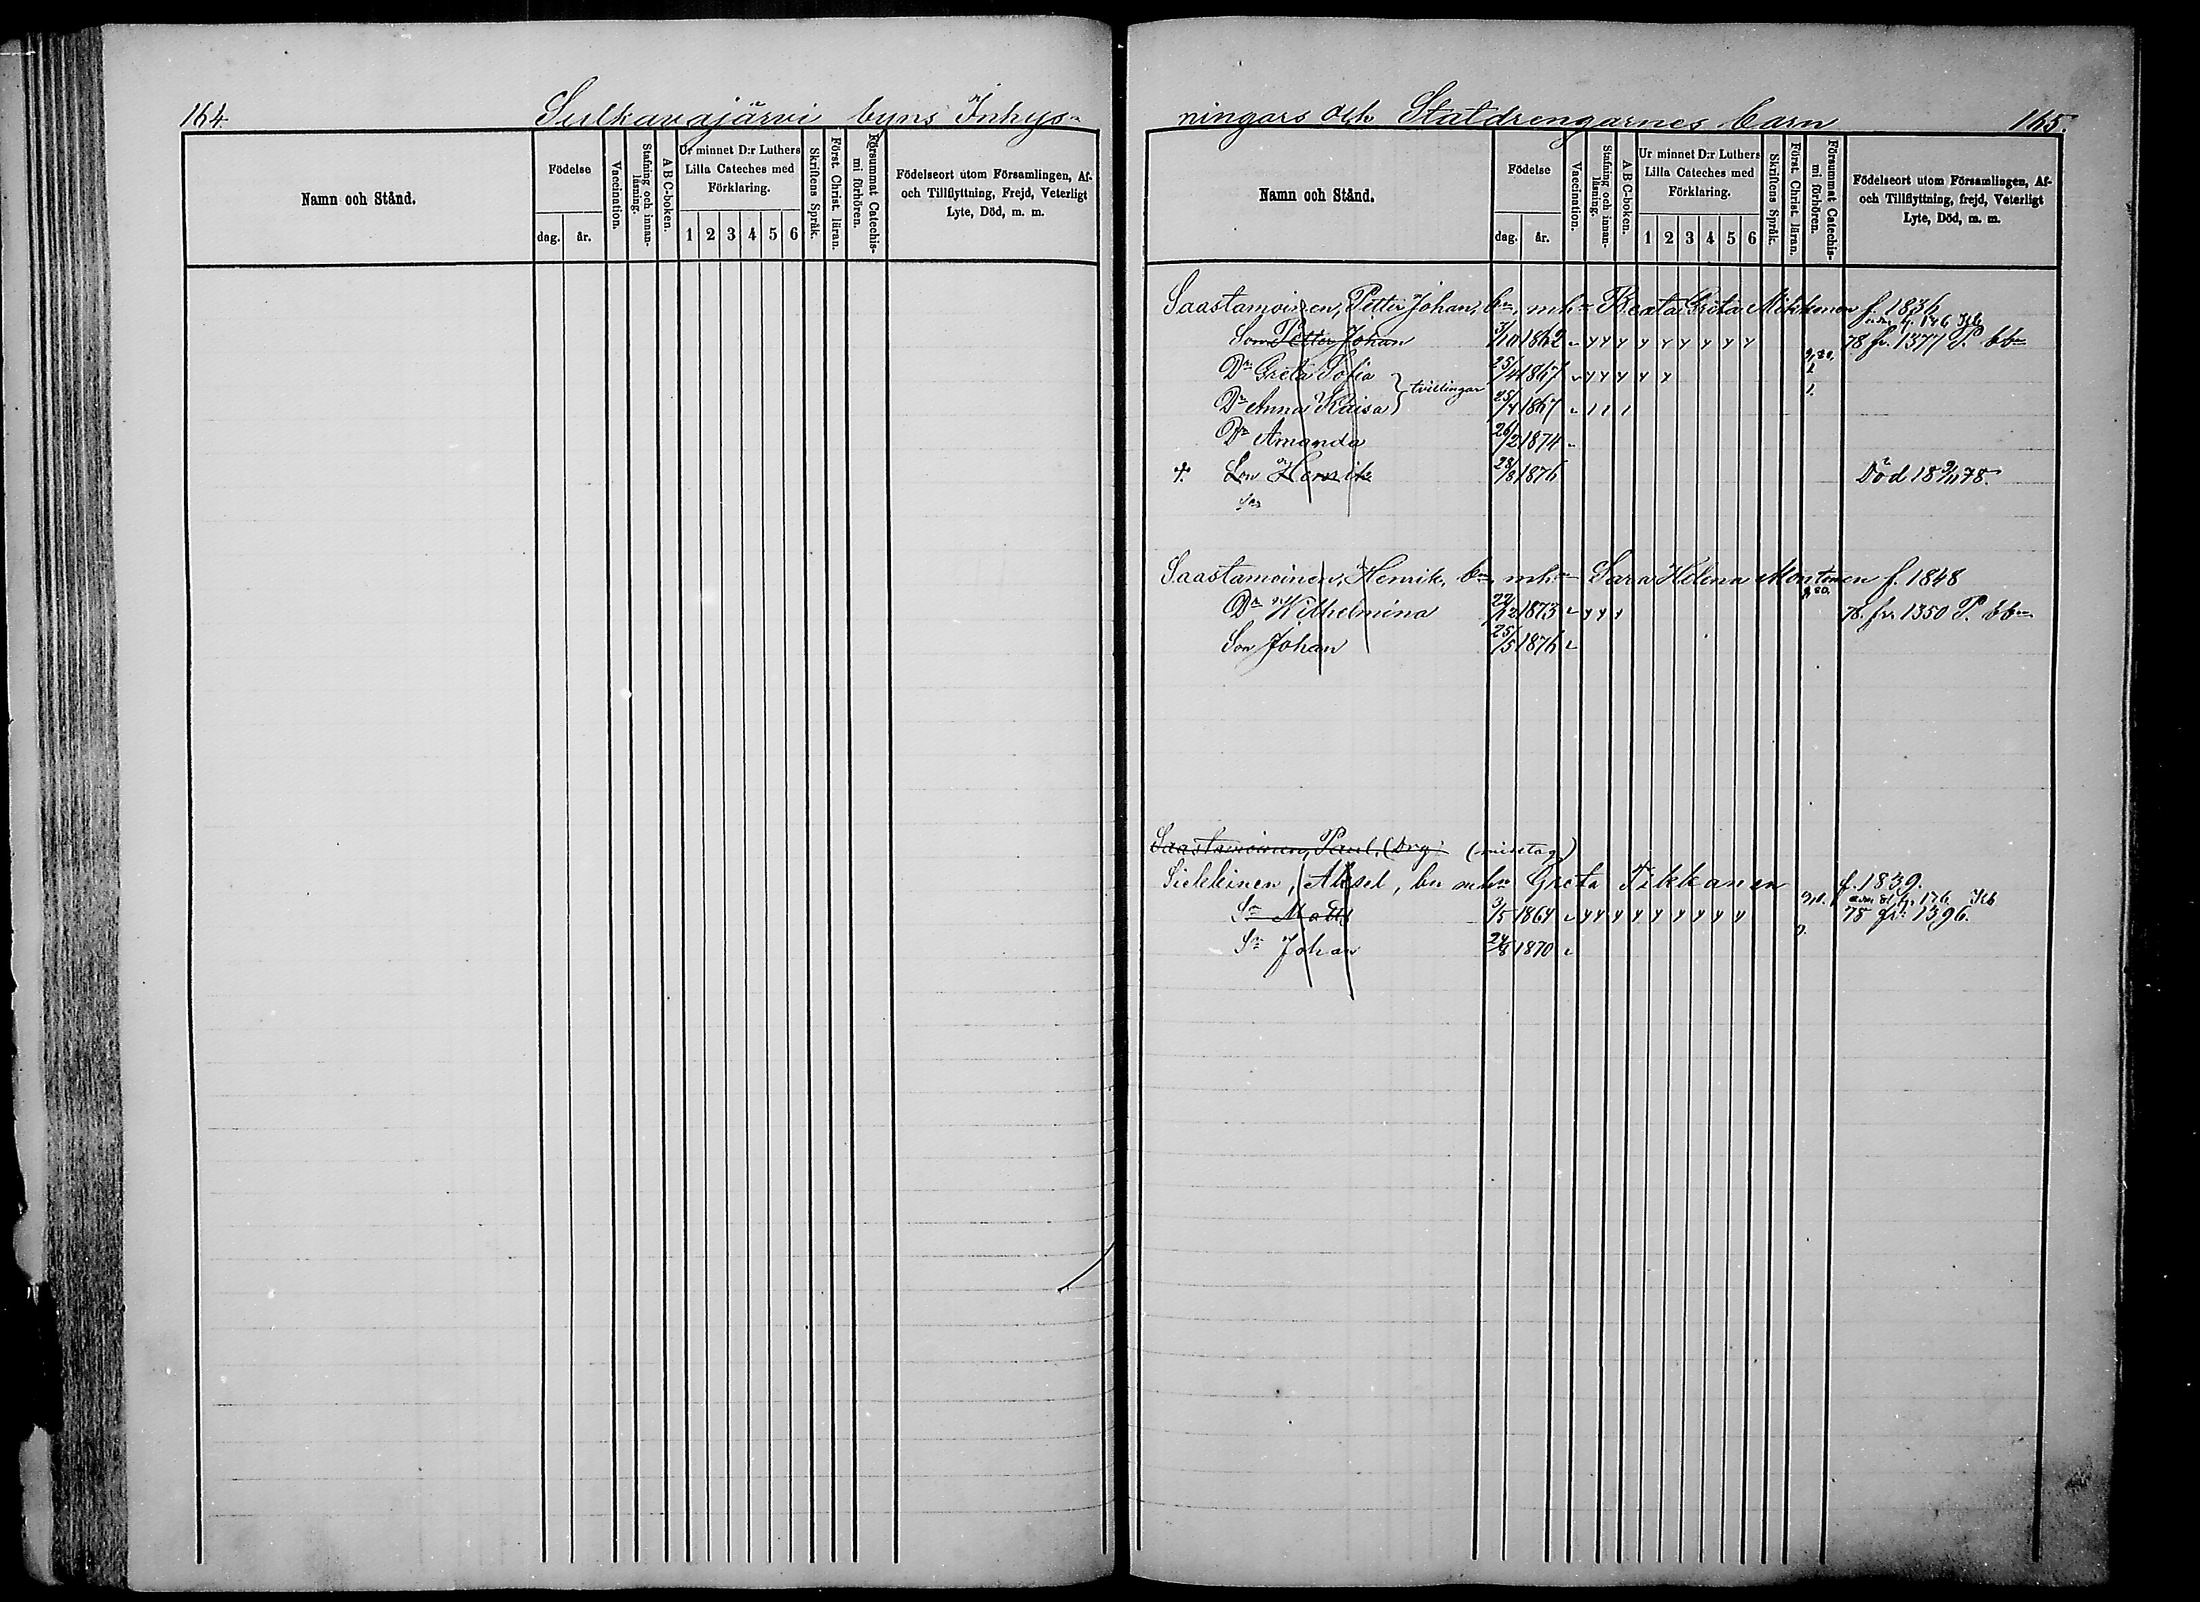 164. Sulkavajärvi byns Inhys-
Namn och Stånd.
Födelse
dag. år.
Vaccination.
Stafning och innan-
läsning.
A B C-boken.
Ur minnet D:r Luthers
Lilla Cateches med
Förklaring.
1 2 3 4 5 6
Skriftens Språk.
Först. Christ. läran.
Försummat Catechis-
mi förhören.
Födelseort utom Församlingen, Af-
och Tillflyttning, Frejd, Veterligt
Lyte, Död, m. m.
ningars och Statdrengarnes barn 165.
Namn och Stånd.
Födelse
dag. år.
Vaccination.
Stafning och innan-
läsning.
A B C-boken.
Ur minnet D:r Luthers
Lilla Cateches med
Förklaring.
1 2 3 4 5 6
Skriftens Språk.
Först. Christ. läran.
Försummat Catechis-
mi förhören.
Födelseort utom Församlingen, Af-
och Tillflyttning, frejd, Veterligt
Lyte, Död, m. m.
Saastamoinen, Petter Johan, bn, mhn Beata Greta Mikkonen f. 1836
Son Petter Johan 3/10 1862 78 fr. 1377 P. bbn
Dr Greta Sofia 25/4 1867
tvillingar
Dr Anna Kaisa 25/4 1867
Dr Amanda 26/2 1874
Son Henrik 28/8 1876 Död 18 9/11 78.
Saastamoinen, Henrik, bn mhn Sara Helena Montonen f. 1848
Dr Wilhelmina 22/12 1873 78. fr. 1350 P. bbn
Son Johan 25/5 1876
Saastamoinen, Paul, (Drg. (misstag)
Siekkinen, Aksel, bn mhn Greta Tikkanen f. 1839.
Sn Matts 3/5 1864 78 fr. 1396.
Sn Johan 24/8 1870